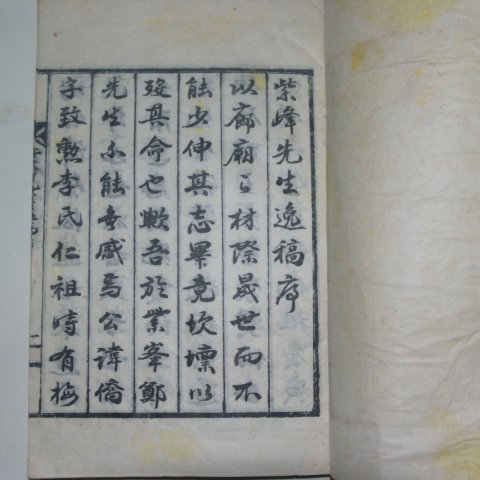 紫峰先生逸稿序
以廊廟之材際晟世而不
能少伸其志畢竟坎壈以
歿其命也歟吾於紫峯鄭
先生不能無感焉公諱僑
字致勲李氏仁祖時有梅